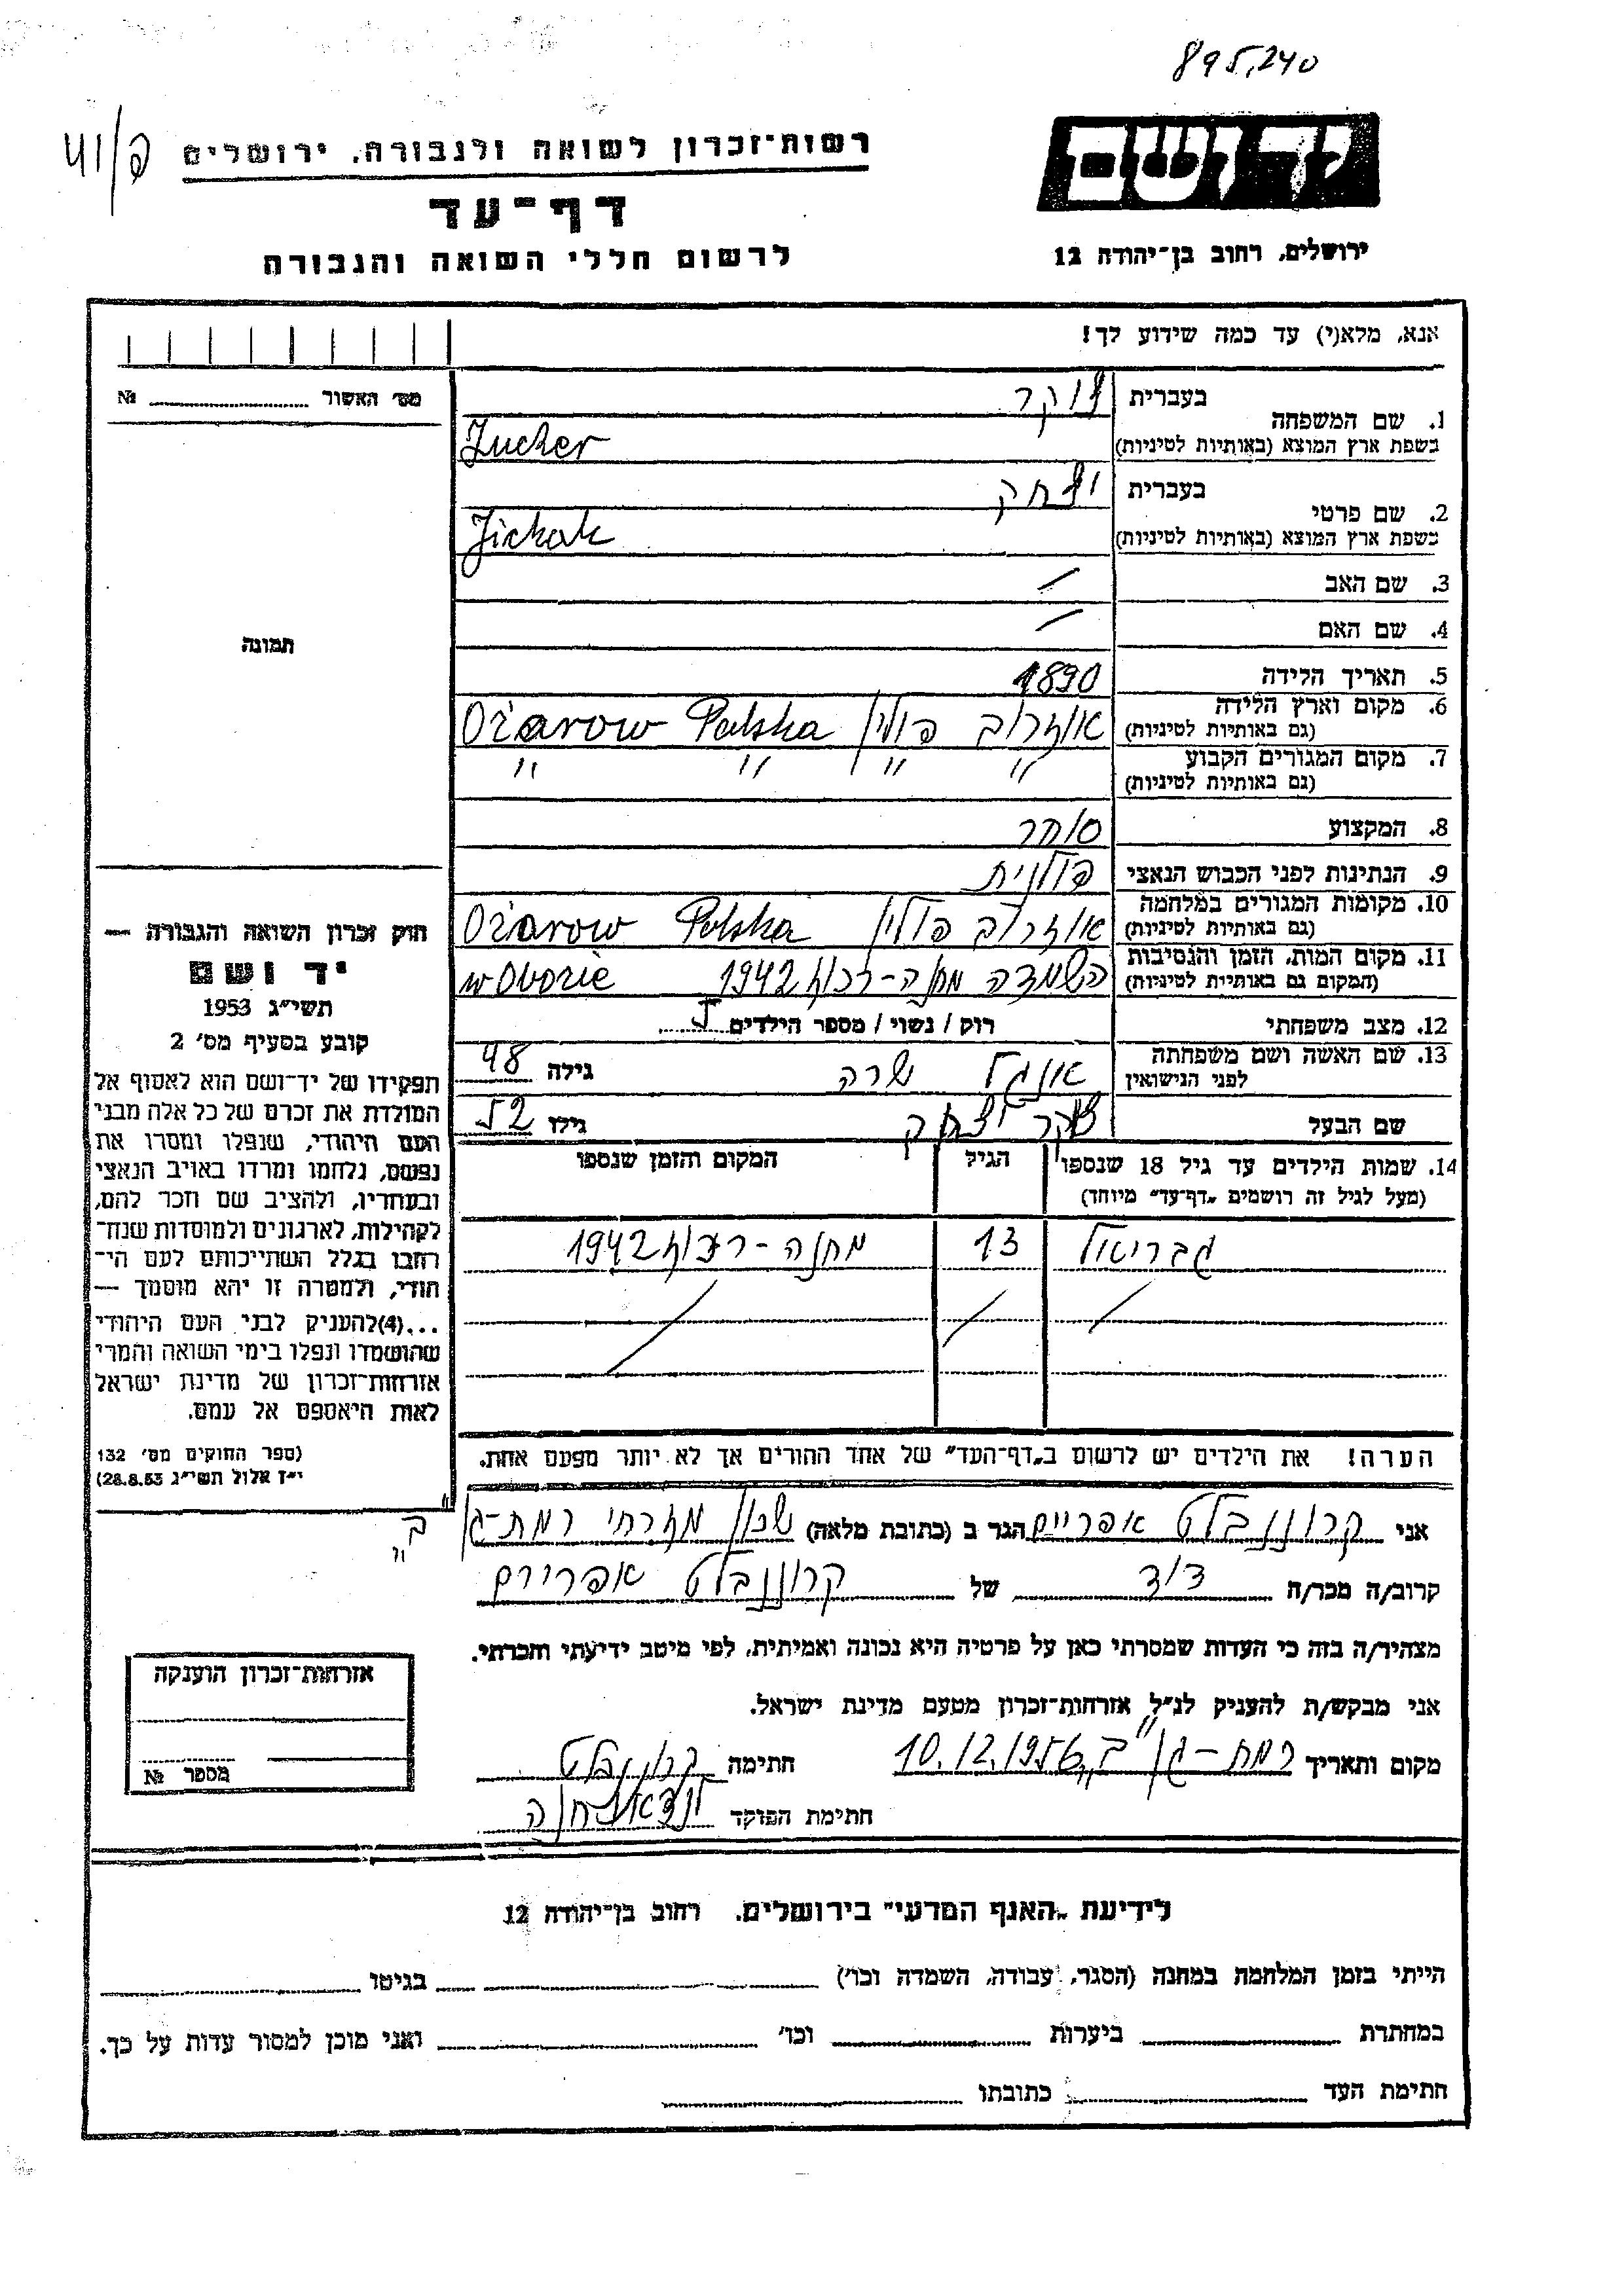 895,240
41/פ
יד ושם
רשות-זכרון לשואה ולגבורה. ירושלים
דף-עד
לרשום חללי השואה והגבורה
ירושלים, רחוב בן-יהודה 12
אנא, מלא(י) עד כמה שידוע לך!
מס׳ האשור № 
1. שם המשפחה
בעברית צוקר
בשפת ארץ המוצא (באותיות לטיניות) Zucker
2. שם פרטי
בעברית יצחק
בשפת ארץ המוצא (באותיות לטיניות) Jichak
3. שם האב /
4. שם האם /
תמונה
5. תאריך הלידה 1890
6. מקום וארץ הלידה (גם באותיות לטיניות) אוזרוב פולין Ożarow Polska
7. מקום המגורים הקבוע (גם באותיות לטיניות) " " " "
8. המקצוע סוחר
9. הנתינות לפני הכבוש הנאצי פולנית
10. מקומות המגורים במלחמה (גם באותיות לטיניות) אוזרוב פולין Ożarow Polska
11. מקום המות, הזמן והנסיבות (המקום גם באותיות לטיניות) השמדה מחנה- 1942 w Obozie
12. מצב משפחתי רוק / נשוי / מספר הילדים 5
13. שם האשה ושם משפחתה לפני הנישואין אנגל שרה גילה 48
שם הבעל צוקר יצחק גילו 52
14. שמות הילדים עד גיל 18 שנספו (מעל לגיל זה רושמים „דף-עד" מיוחד)
הגיל
המקום והזמן שנספו
גבריאל 13 מחנה- 1942
הערה! את הילדים יש לרשום ב„דף-העד" של אחד ההורים אך לא יותר מפעם אחת.
חוק זכרון השואה והגבורה —
יד ושם
תשי״ג 1953
קובע בסעיף מס׳ 2
תפקידו של יד-ושם הוא לאסוף אל
המולדת את זכרם של כל אלה מבני
העם היהודי, שנפלו ומסרו את
נפשם, נלחמו ומרדו באויב הנאצי
ובעוזריו, ולהציב שם וזכר להם,
לקהילות, לארגונים ולמוסדות שנח-
רבו בגלל השתייכותם לעם הי-
הודי, ולמטרה זו יהא מוסמך —
...(4) להעניק לבני העם היהודי
שהושמדו ונפלו בימי השואה והמרי
אזרחות-זכרון של מדינת ישראל
לאות היאספם אל עמם.
(ספר החוקים מס׳ 132
י״ז אלול תשי״ג 28.8.53)
אני קרוננבלט אפריים הגר ב (כתובת מלאה) שכון מזרחי רמת-גן "ב"
קרוב/ה מכר/ה דוד של קרוננבלט אפריים
מצהיר/ה בזה כי העדות שמסרתי כאן על פרטיה היא נכונה ואמיתית, לפי מיטב ידיעתי והכרתי.
אני מבקש/ת להעניק לנ״ל אזרחות-זכרון מטעם מדינת ישראל.
מקום ותאריך רמת-גן "ב" 10.12.1956 חתימה קרוננבלט
חתימת הפוקד
אזרחות-זכרון הוענקה
מספר №
לידיעת „האגף המדעי" בירושלים. רחוב בן-יהודה 12
הייתי בזמן המלחמה במחנה (הסגר, עבודה, השמדה וכו׳) בגיטו
במחתרת ביערות וכו׳ ואני מוכן למסור עדות על כך.
חתימת העד כתובתו